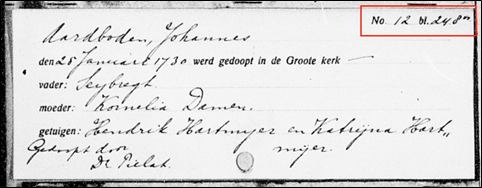 No. 12 bl. 248vo
Aardboden, Johannes
den 25 Januari 1730 werd gedoopt in de Groote kerk —
vader: Seybregt
moeder: Kornelia Damen.
getuigen: Hendrik Hartmyer en Katrijna Hart„
Gedoopt door myer.
Dr Pielat.